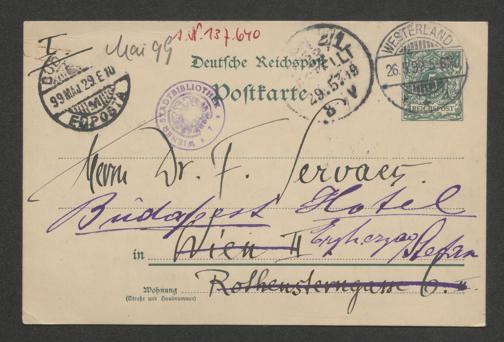 I.
Mai 99
I. N. 137.640
Deutsche Reichspost
Postkarte
99 MAI 29 E 10
WESTERLAND
26.5.99
REICHSPOST
WIENER STADTBIBLIOTHEK
Herrn Dr. F. Servaes.
Budapest Hotel
in Wien II Erzherzog Stefan
Wohnung
(Straße und Hausnummer)
Rothensterngasse 6.